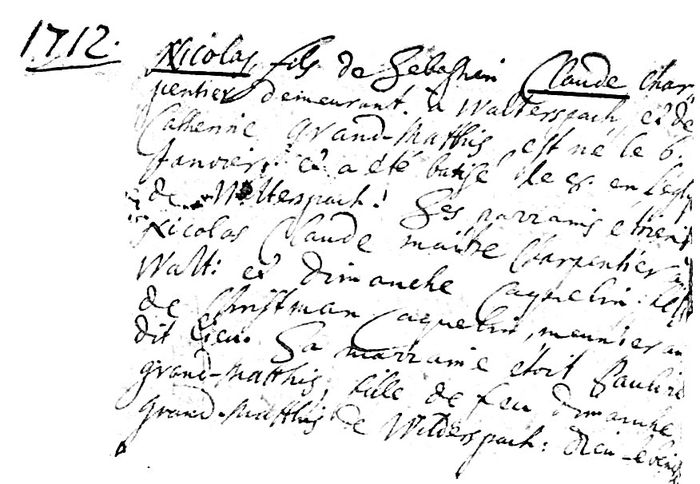 1712.
Nicolas, fils de Sebastien Claude char
pentier demeurant à Walterspach, et de
Catherine Grand-Matthis est né le 6
Janvier, et a été batisé le 8. en l'egl
de Walterspach. Ses parrains etoient
Nicolas Claude maitre Charpentier
Walt: et dimanche Caquelin:
de Christman Caquelin, meunier au
dit lieu. Sa marraine etoit Pauline
grand-Matthis, fille de feu dimanche
grand-Matthis de Wilderspach: Dieu le beni